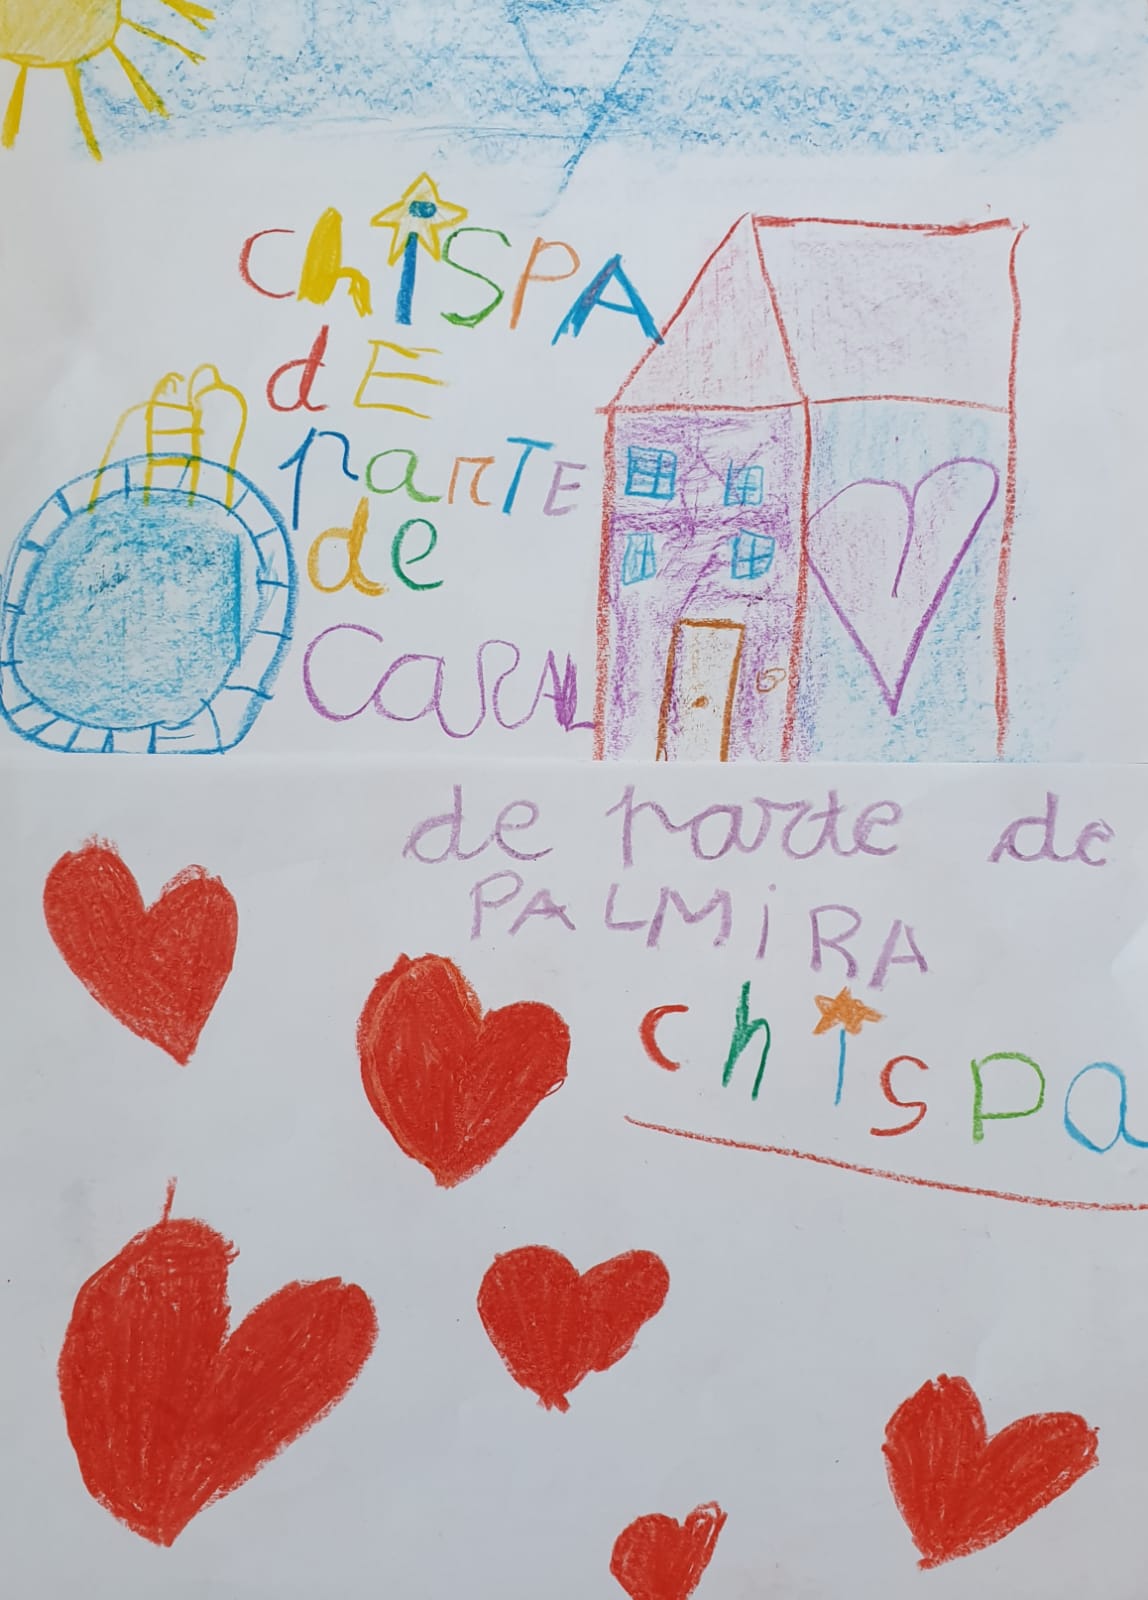 chispA
dE
parTE
de
CaRAL
de parte de
PALMiRA
chispa